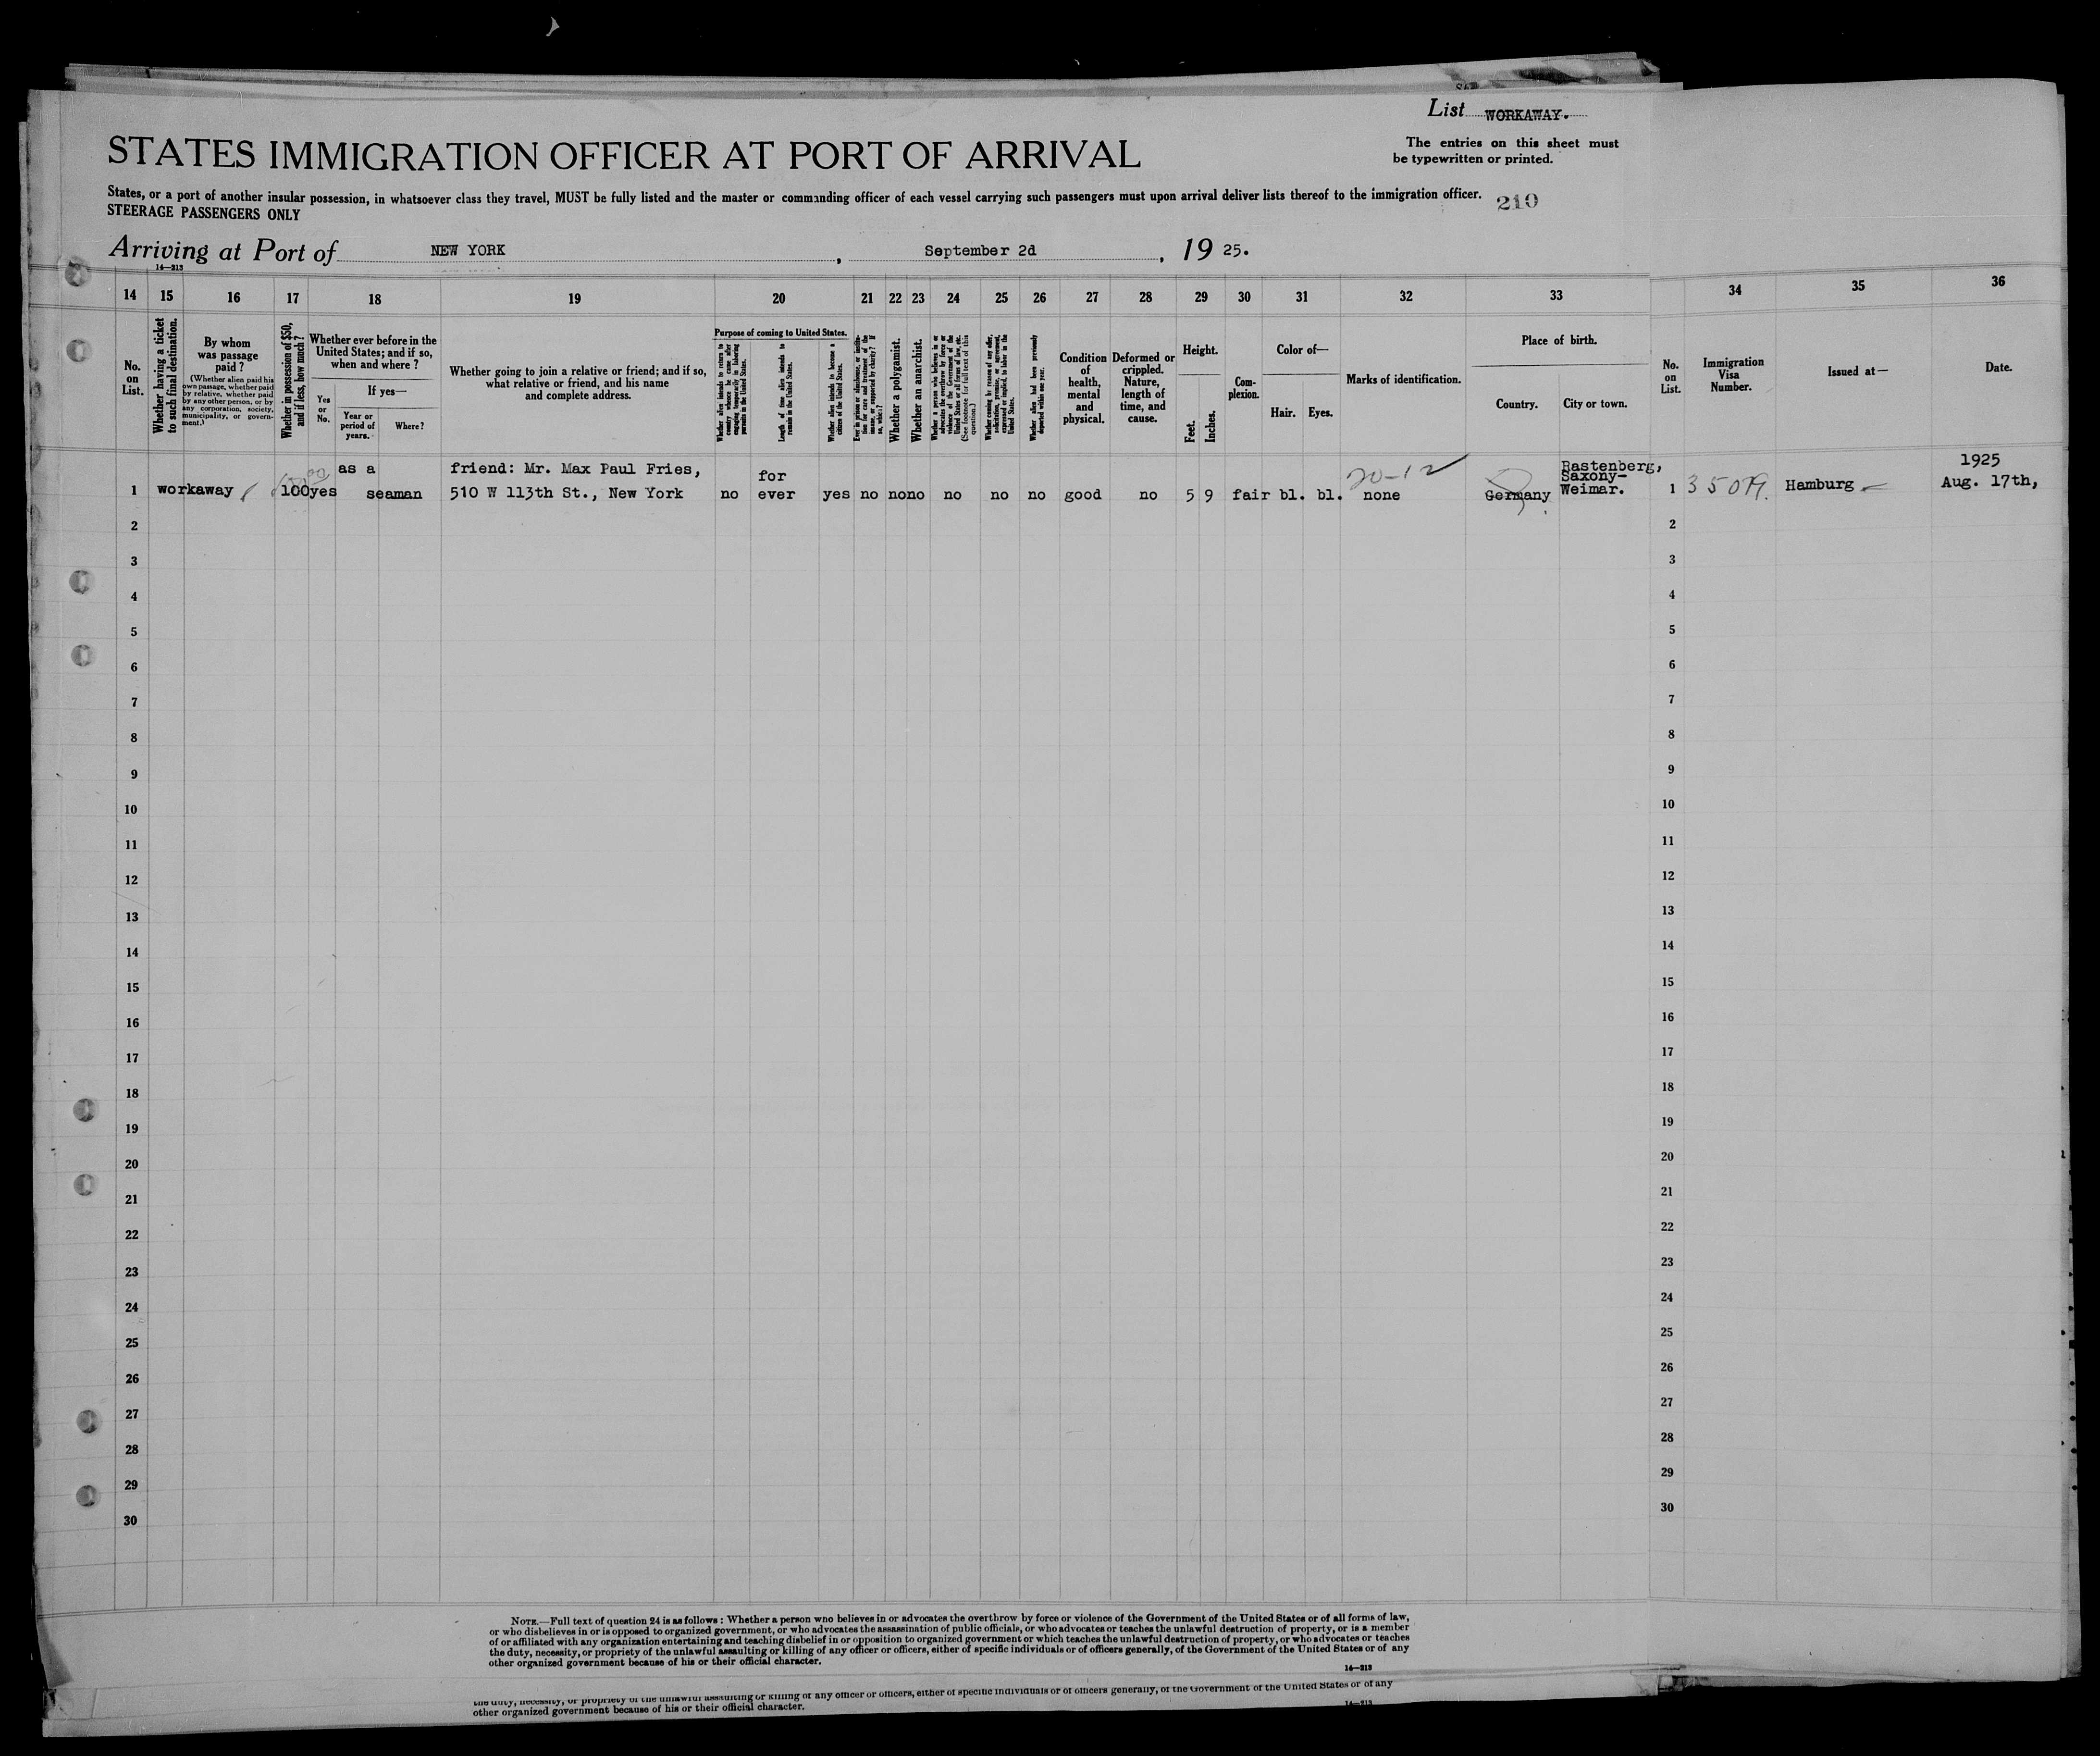 List WORKAWAY.
STATES IMMIGRATION OFFICER AT PORT OF ARRIVAL
The entries on this sheet must
be typewritten or printed.
States, or a port of another insular possession, in whatsoever class they travel, MUST be fully listed and the master or commanding officer of each vessel carrying such passengers must upon arrival deliver lists thereof to the immigration officer.
210
STEERAGE PASSENGERS ONLY
Arriving at Port of NEW YORK, September 2d, 19 25.
14—213
14 15 16 17 18 19 20 21 22 23 24 25 26 27 28 29 30 31 32 33 34 35 36
No. on List.
Whether having a ticket to such final destination.
By whom was passage paid?
(Whether alien paid his own passage, whether paid by relative, whether paid by any other person, or by any corporation, society, municipality, or government.)
Whether in possession of $50, and if less, how much?
Whether ever before in the United States; and if so, when and where?
Yes or No.
If yes—
Year or period of years.
Where?
Whether going to join a relative or friend; and if so, what relative or friend, and his name and complete address.
Purpose of coming to United States.
Whether alien intends to return to country whence he came after engaging temporarily in laboring pursuits in the United States.
Length of time alien intends to remain in the United States.
Whether alien intends to become a citizen of the United States.
Ever in prison or almshouse, or institution for care and treatment of the insane, or supported by charity? If so, which?
Whether a polygamist.
Whether an anarchist.
Whether a person who believes in or advocates the overthrow by force or violence of the Government of the United States or all forms of law, etc. (See footnote for full text of this question.)
Whether coming by reason of any offer, solicitation, promise, or agreement, expressed or implied, to labor in the United States.
Whether alien had been previously deported within one year.
Condition of health, mental and physical.
Deformed or crippled. Nature, length of time, and cause.
Height.
Feet. Inches.
Complexion.
Color of—
Hair. Eyes.
Marks of identification.
Place of birth.
Country. City or town.
No. on List.
Immigration Visa Number.
Issued at—
Date.
as a friend: Mr. Max Paul Fries, for 20-12 Rastenberg, Saxony- 1925
1 workaway 100 yes seaman 510 W 113th St., New York no ever yes no no no no no no good no 5 9 fair bl. bl. none Germany Weimar. 1 35079. Hamburg Aug. 17th,
2 2
3 3
4 4
5 5
6 6
7 7
8 8
9 9
10 10
11 11
12 12
13 13
14 14
15 15
16 16
17 17
18 18
19 19
20 20
21 21
22 22
23 23
24 24
25 25
26 26
27 27
28 28
29 29
30 30
NOTE.—Full text of question 24 is as follows: Whether a person who believes in or advocates the overthrow by force or violence of the Government of the United States or of all forms of law,
or who disbelieves in or is opposed to organized government, or who advocates the assassination of public officials, or who advocates or teaches the unlawful destruction of property, or is a member
of or affiliated with any organization entertaining and teaching disbelief in or opposition to organized government or which teaches the unlawful destruction of property, or who advocates or teaches
the duty, necessity, or propriety of the unlawful assaulting or killing of any officer or officers, either of specific individuals or of officers generally, of the Government of the United States or of any
other organized government because of his or their official character.
14—213
the duty, necessity, or propriety of the unlawful assaulting or killing of any officer or officers, either of specific individuals or of officers generally, of the Government of the United States or of any
other organized government because of his or their official character.
14—213